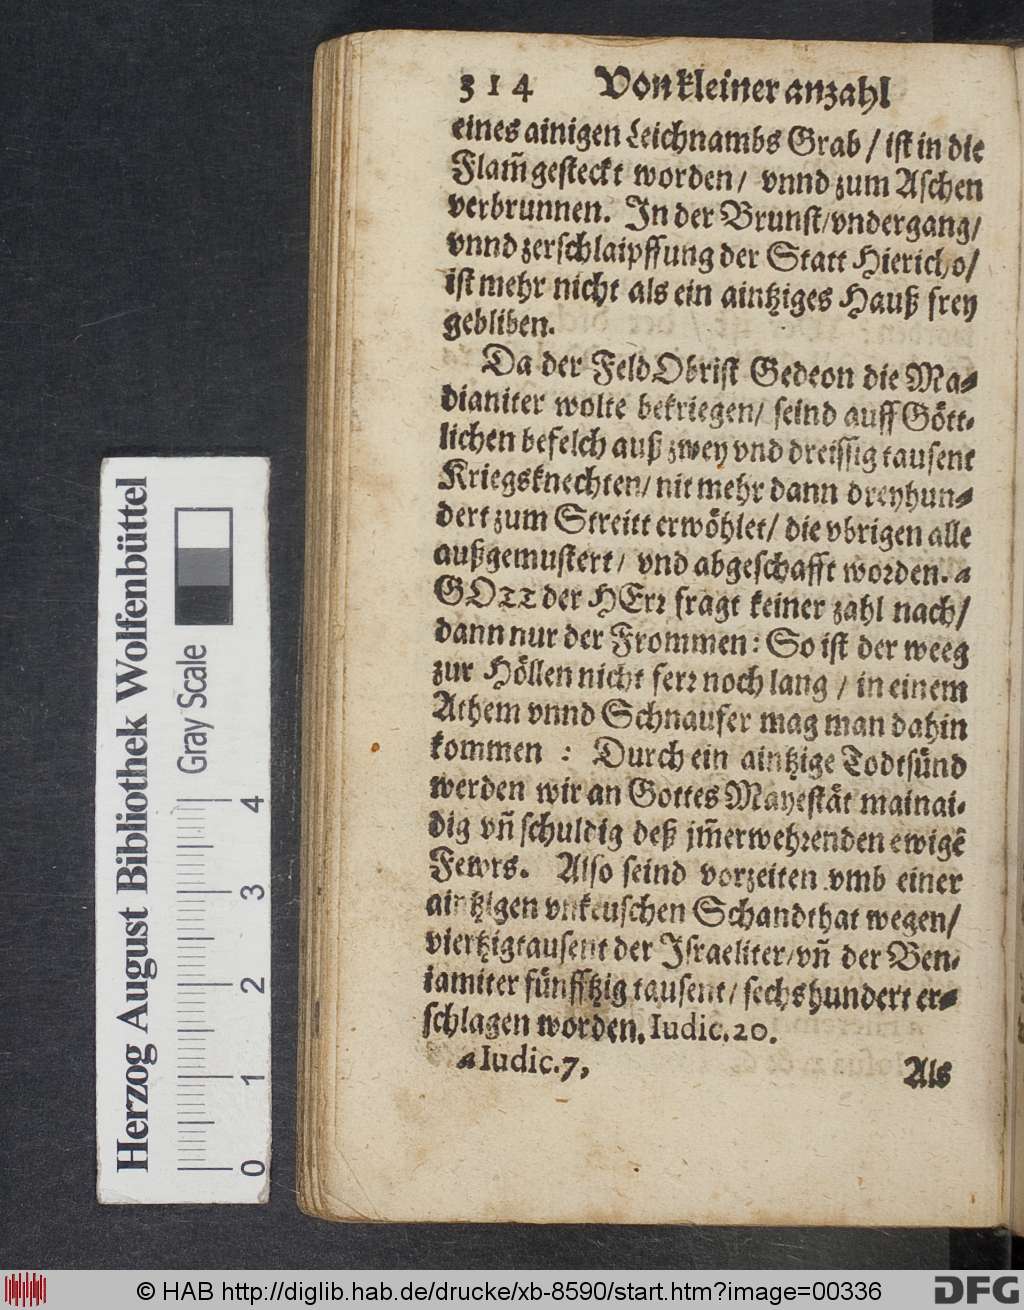 314 Von kleiner anzahl
eines ainigen Leichnambs Grab / ist in die
Flam̃ gesteckt worden / vnnd zum Aschen
verbrunnen. In der Brunst / vndergang /
vnnd zerschlaipffung der Statt Hiericho /
ist mehr nicht als ein aintziges Hauß frey
gebliben.
Da der Feld Obrist Gedeon die Ma-
dianiter wolte bekriegen / seind auff Gött-
lichen befelch auß zwey vnd dreissig tausent
Kriegsknechten / nit mehr dann dreyhun-
dert zum Streitt erwöhlet / die vbrigen alle
außgemustert / vnd abgeschafft worden. a
GOTT der HErr fragt keiner zahl nach /
dann nur der Frommen: So ist der weeg
zur Höllen nicht ferr noch lang / in einem
Athem vnnd Schnaufer mag man dahin
kommen : Durch ein aintzige Todtsünd
werden wir an Gottes Mayestät mainai-
dig vñ schuldig deß jm̃erwehrenden ewigẽ
Fewrs. Also seind vorzeiten vmb einer
aintzigen vnkeuschen Schandthat wegen /
viertzigtausent der Israeliter / vñ der Ben-
iamiter fünfftzig tausent / sechshundert er-
schlagen worden. Iudic. 20.
a Iudic. 7,
Als
Herzog August Bibliothek Wolfenbüttel
Gray Scale
0 1 2 3 4
© HAB http://diglib.hab.de/drucke/xb-8590/start.htm?image=00336
DFG